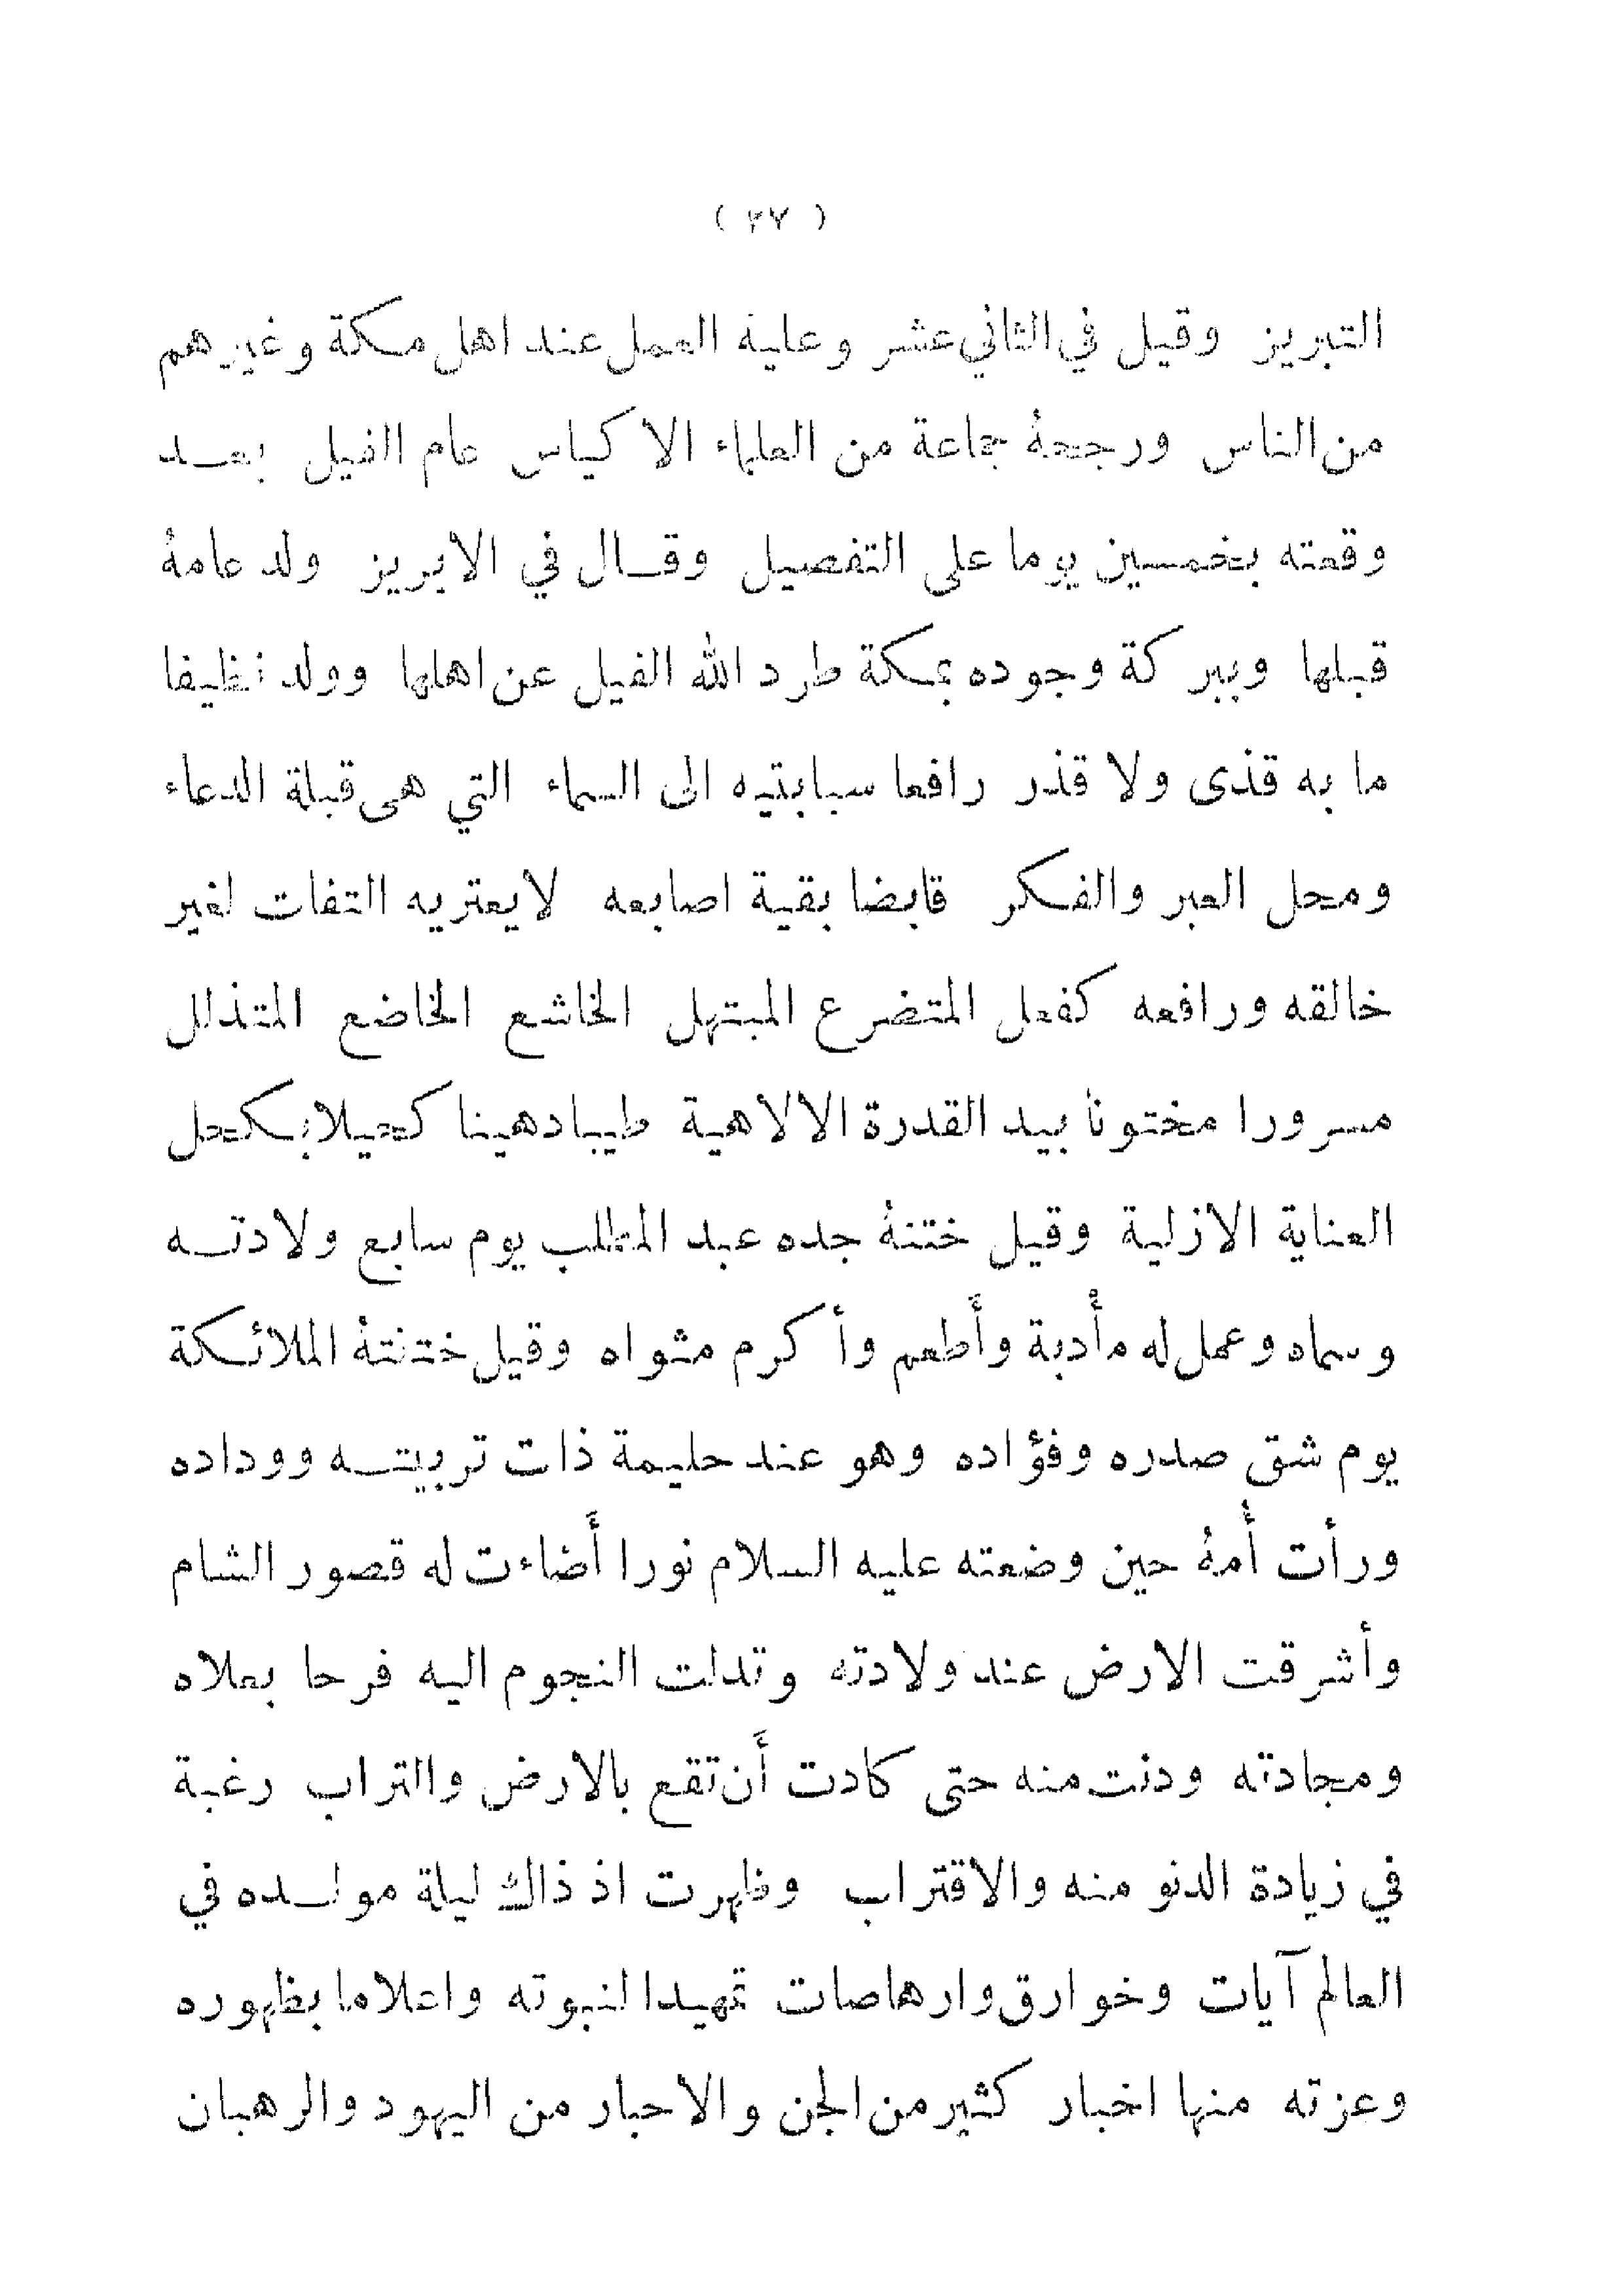 ( ٢٧ )
التبريز وقيل في الثاني عشر وعليه العمل عند اهل مكة وغيرهم
من الناس ورجحهُ جماعة من العلماء الاكياس عام الفيل بعـد
وقعته بخمسين يوما على التفصيل وقـال في الابريز ولد عامهُ
قبلها وببركة وجوده بمكة طرد الله الفيل عن اهلها وولد نظيفا
ما به قذى ولا قذر رافعا سبابتيه الى السماء التي هى قبلة الدعاء
ومحل العبر والفكر قابضا بقية اصابعه لايعتريه التفات لغير
خالقه ورافعه كفعل المتضرع المبتهل الخاشع الخاضع المتذلل
مسرورا مختونا بيد القدرة الالاهية طيبا دهينا كحيلا بكحل
العناية الازلية وقيل ختنهُ جده عبد المطلب يوم سابع ولادتـه
وسماه وعمل له مأدبة وأَطعم وأكرم مثواه وقيل ختنتهُ الملائكة
يوم شق صدره وفؤاده وهو عند حليمة ذات تربيتـه ووداده
ورأت أُمهُ حين وضعته عليه السلام نورا أَضاءت له قصور الشام
وأشرقت الارض عند ولادته وتدلت النجوم اليه فرحا بعلاه
ومجادته ودنت منه حتى كادت أَن تقع بالارض والتراب رغبة
في زيادة الدنو منه والاقتراب وظهرت اذ ذاك ليلة مولـده في
العالم آيات وخوارق وارهاصات تمهيدا لنبوته واعلاما بظهوره
وعزته منها اخبار كثير من الجن والاحبار من اليهود والرهبان